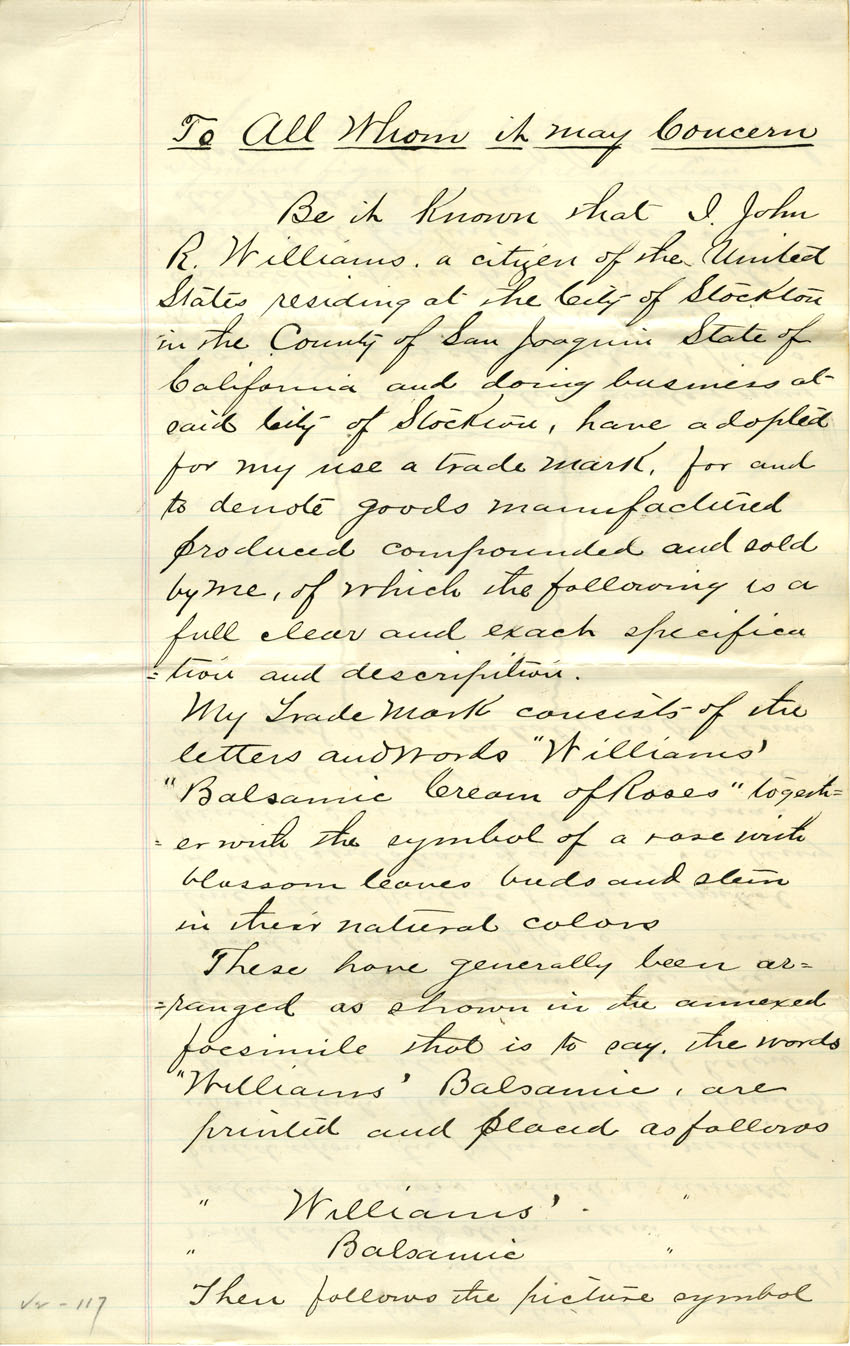 To All Whom it may Concern
Be it Known that I. John
R. Williams. a citizen of the United
States residing at the City of Stockton
in the County of San Joaquin State of
California and doing business at
said City of Stockton, have adopted
for my use a trade mark, for and
to denote goods manufactured
produced compounded and sold
by me, of which the following is a
full clear and exact specifica
=tion and description.
My Trade Mark consists of the
letters and words "Williams'
"Balsamic Cream of Roses" togeth=
=er with the symbol of a rose with
blossom leaves buds and stem
in their natural colors
These have generally been ar=
=ranged as shown in the annexed
facsimile that is to say. the words
"Williams' Balsamic, are
printed and placed as follows
" Williams' "
" Balsamic "
Then follows the picture symbol